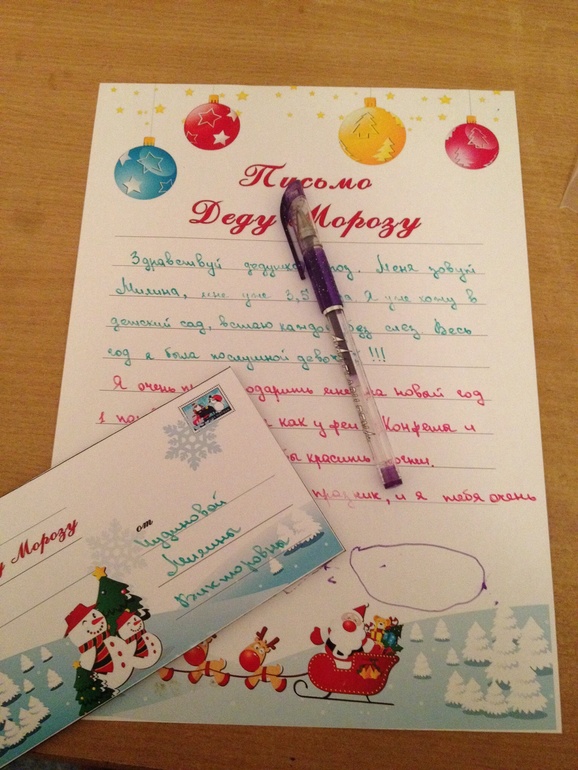 Письмо
Деду Морозу
Здравствуй дедушка Мороз. Меня зовут
Милина, мне уже 3,5 года Я уже хожу в
детский сад, встаю каждое без слез. Весь
год я была послушной девочкой !!!
Я очень подарить мне на новый год
1 как у феи. Конфеты и
бы красить ногти.
праздник, и я тебя очень
Морозу
от
Кудиновой
Милины
Викторовны